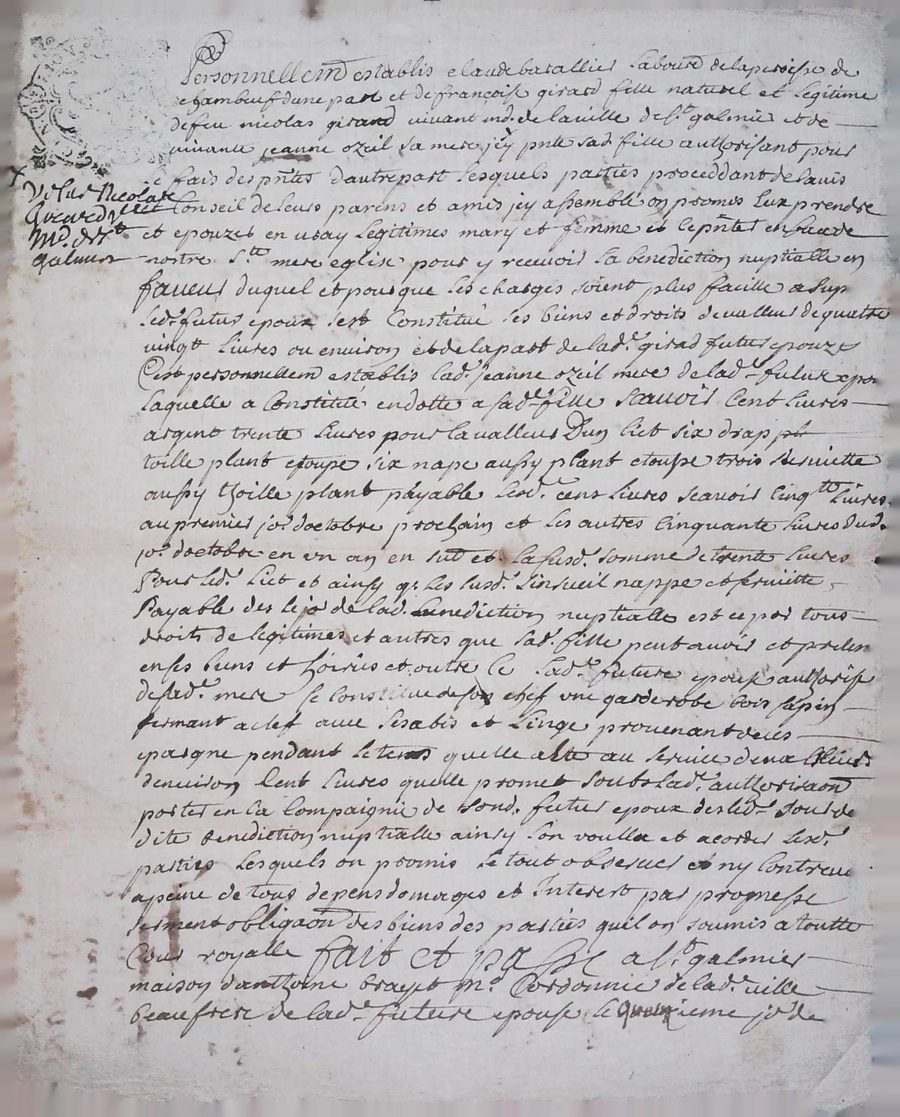 Personnellemt establis claude batallier laboure de la peroisse de
chambeuf dune part et de françoise girard fille naturel et legitime
de feu nicolas girard vivant md. de la ville de st. galmier et de
vivante jeanne ozeil sa mere jcy pnte sad fille authorisant pour
le fais des pntes dautre part lesquels parties proceddant de lavis
Conseil de leurs parens et amis jcy assemblé on promis Eux prendre
et epouzer en vray legitimes mary et femme et ce pntes en face de
nostre Ste mere eglise pour y recevoir la benediction nuptialle en
faveur duquel et pour que les charges soient plus facille a sup
led. futur epoux sest Constitué ses biens et droits de valleur de quatre
vingt livres ou environ et de la part de lad. girad future epouze
Cest personnellemt establis lad. jeanne ozeil mere de lad. future epou
laquelle a Constitué en dotte a sad. fille scauoir Cent livres
argent trente livres pour la valleur Dun lict six drapt
toille plant etoupe six nape aussy plant etoupe trois serviette
aussy thoille plant payable lesd. cent livres scauoir Cinqte livres
au premier jo. doctobre prochain et les autres Cinquante livres dud.
jo. doctobre en un an en suit et la susd. somme de trente livres
Pour led. lict et ainsy q. les susd. linseuil nappe et serviitte
Payable des le jo. de lad. benediction nuptialle est ce par tous
droits de legitimes et autres que sad. fille peut auoir et preten
en ses biens et hoiries et outre ce lad. future epouse authorise
de sad. mere se constitue de son chef une garderobe bois sapin
fermant a clef avec ses abis et linge provenant de ses
epargne pendant le tems quelle a ete au service de
denviron Cent livres quelle promet soubs lad. authorisaon
porter en la Compaignie de sond. futur epoux des led. jour de
dite benediction nuptialle ainsy lon voulla et acorder lesd.
parties lesquels on promis le tout observer et ny Contreve
a peine de tous depens domages et Interest par promesse
serment obligaon des biens des parties quil on soumis a toutte
Cour royalle fait et passe a st. galmier
maison danthoine brayet me Cordonnie de lad. ville
beaufrere de lad. future epouse le quinzieme jo. de
Nicolas
Girard
Md. de st
galmier